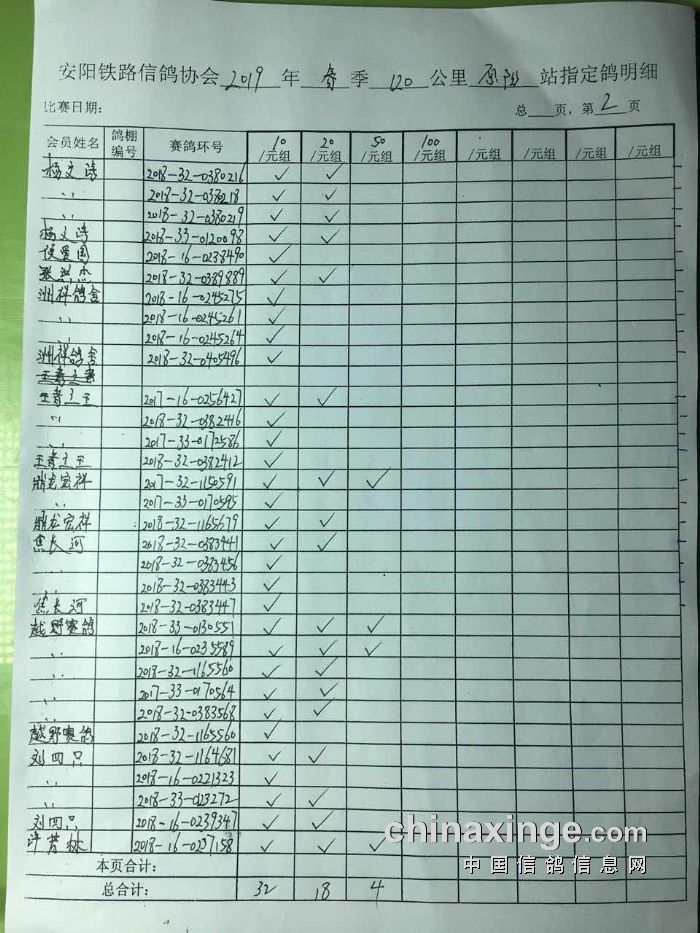 安阳铁路信鸽协会 2019 年 春 季 120 公里 原阳 站指定鸽明细
比赛日期： 总 页，第 2 页
会员姓名 鸽棚编号 赛鸽环号 10/元组 20/元组 50/元组 100/元组 /元组 /元组 /元组 /元组
杨文涛 2018-32-0380216 ✓ ✓
〃 2018-32-0380218 ✓ ✓
〃 2018-32-0380219 ✓ ✓
杨文涛 2018-33-0120098 ✓ ✓
2018-16-0238490 ✓
2018-32-0389889 ✓ ✓
洲祥鸽舍 2018-16-0245275 ✓
〃 2018-16-0245261 ✓
〃 2018-16-0245264 ✓
洲祥鸽舍 2018-32-0405496 ✓
2017-16-0256427 ✓ ✓
〃 2018-32-0382416 ✓
〃 2017-33-0172586 ✓
2018-32-0382412 ✓
鼎龙宏祥 2017-32-1150591 ✓ ✓ ✓
〃 2017-33-0170595 ✓
鼎龙宏祥 2018-32-1165679 ✓ ✓
焦长河 2018-32-0383441 ✓ ✓
〃 2018-32-0383456 ✓
〃 2018-32-0383443 ✓
焦长河 2018-32-0383447 ✓
越野赛鸽 2018-33-0130551 ✓ ✓ ✓
〃 2018-16-0235589 ✓ ✓ ✓
〃 2018-32-1165560 ✓ ✓
〃 2017-33-0170564 ✓ ✓
〃 2018-32-0383568 ✓ ✓
越野赛鸽 2018-32-1165560 ✓
刘四只 2018-32-1164681 ✓ ✓
〃 2018-16-0221323 ✓
〃 2018-33-023272 ✓ ✓
刘四只 2018-16-0239347 ✓ ✓
许芳林 2018-16-0207158 ✓ ✓ ✓
本页合计：
总合计： 32 18 4
chinaxinge.com
中国信鸽信息网